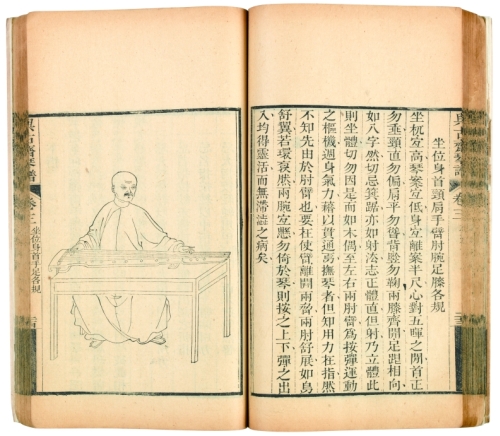 與古齋琴譜 卷三
坐位身首頸肩手臂肘腕足膝各規
坐杌宜高琴案宜低身宜離案半尺心對五暉之間首正
勿垂頸直勿偏肩平勿聳背豎勿鞠兩膝齊開足跟相向
如八字然切忌箕踞亦如射湊志正體直但射乃立體此
則坐體切勿因是而如木偶至左右兩肘臂爲按彈運動
之樞機週身氣力藉以貫通焉撫琴者但知用力在指然
不知先由於肘臂也要在使臂離開兩脅兩肘舒展如鳥
舒翼若環裒然兩腕宜懸勿倚於琴則按之上下彈之出
入均得靈活而無滯澁之病矣
與古齋琴譜 卷三 坐位身首手足各規